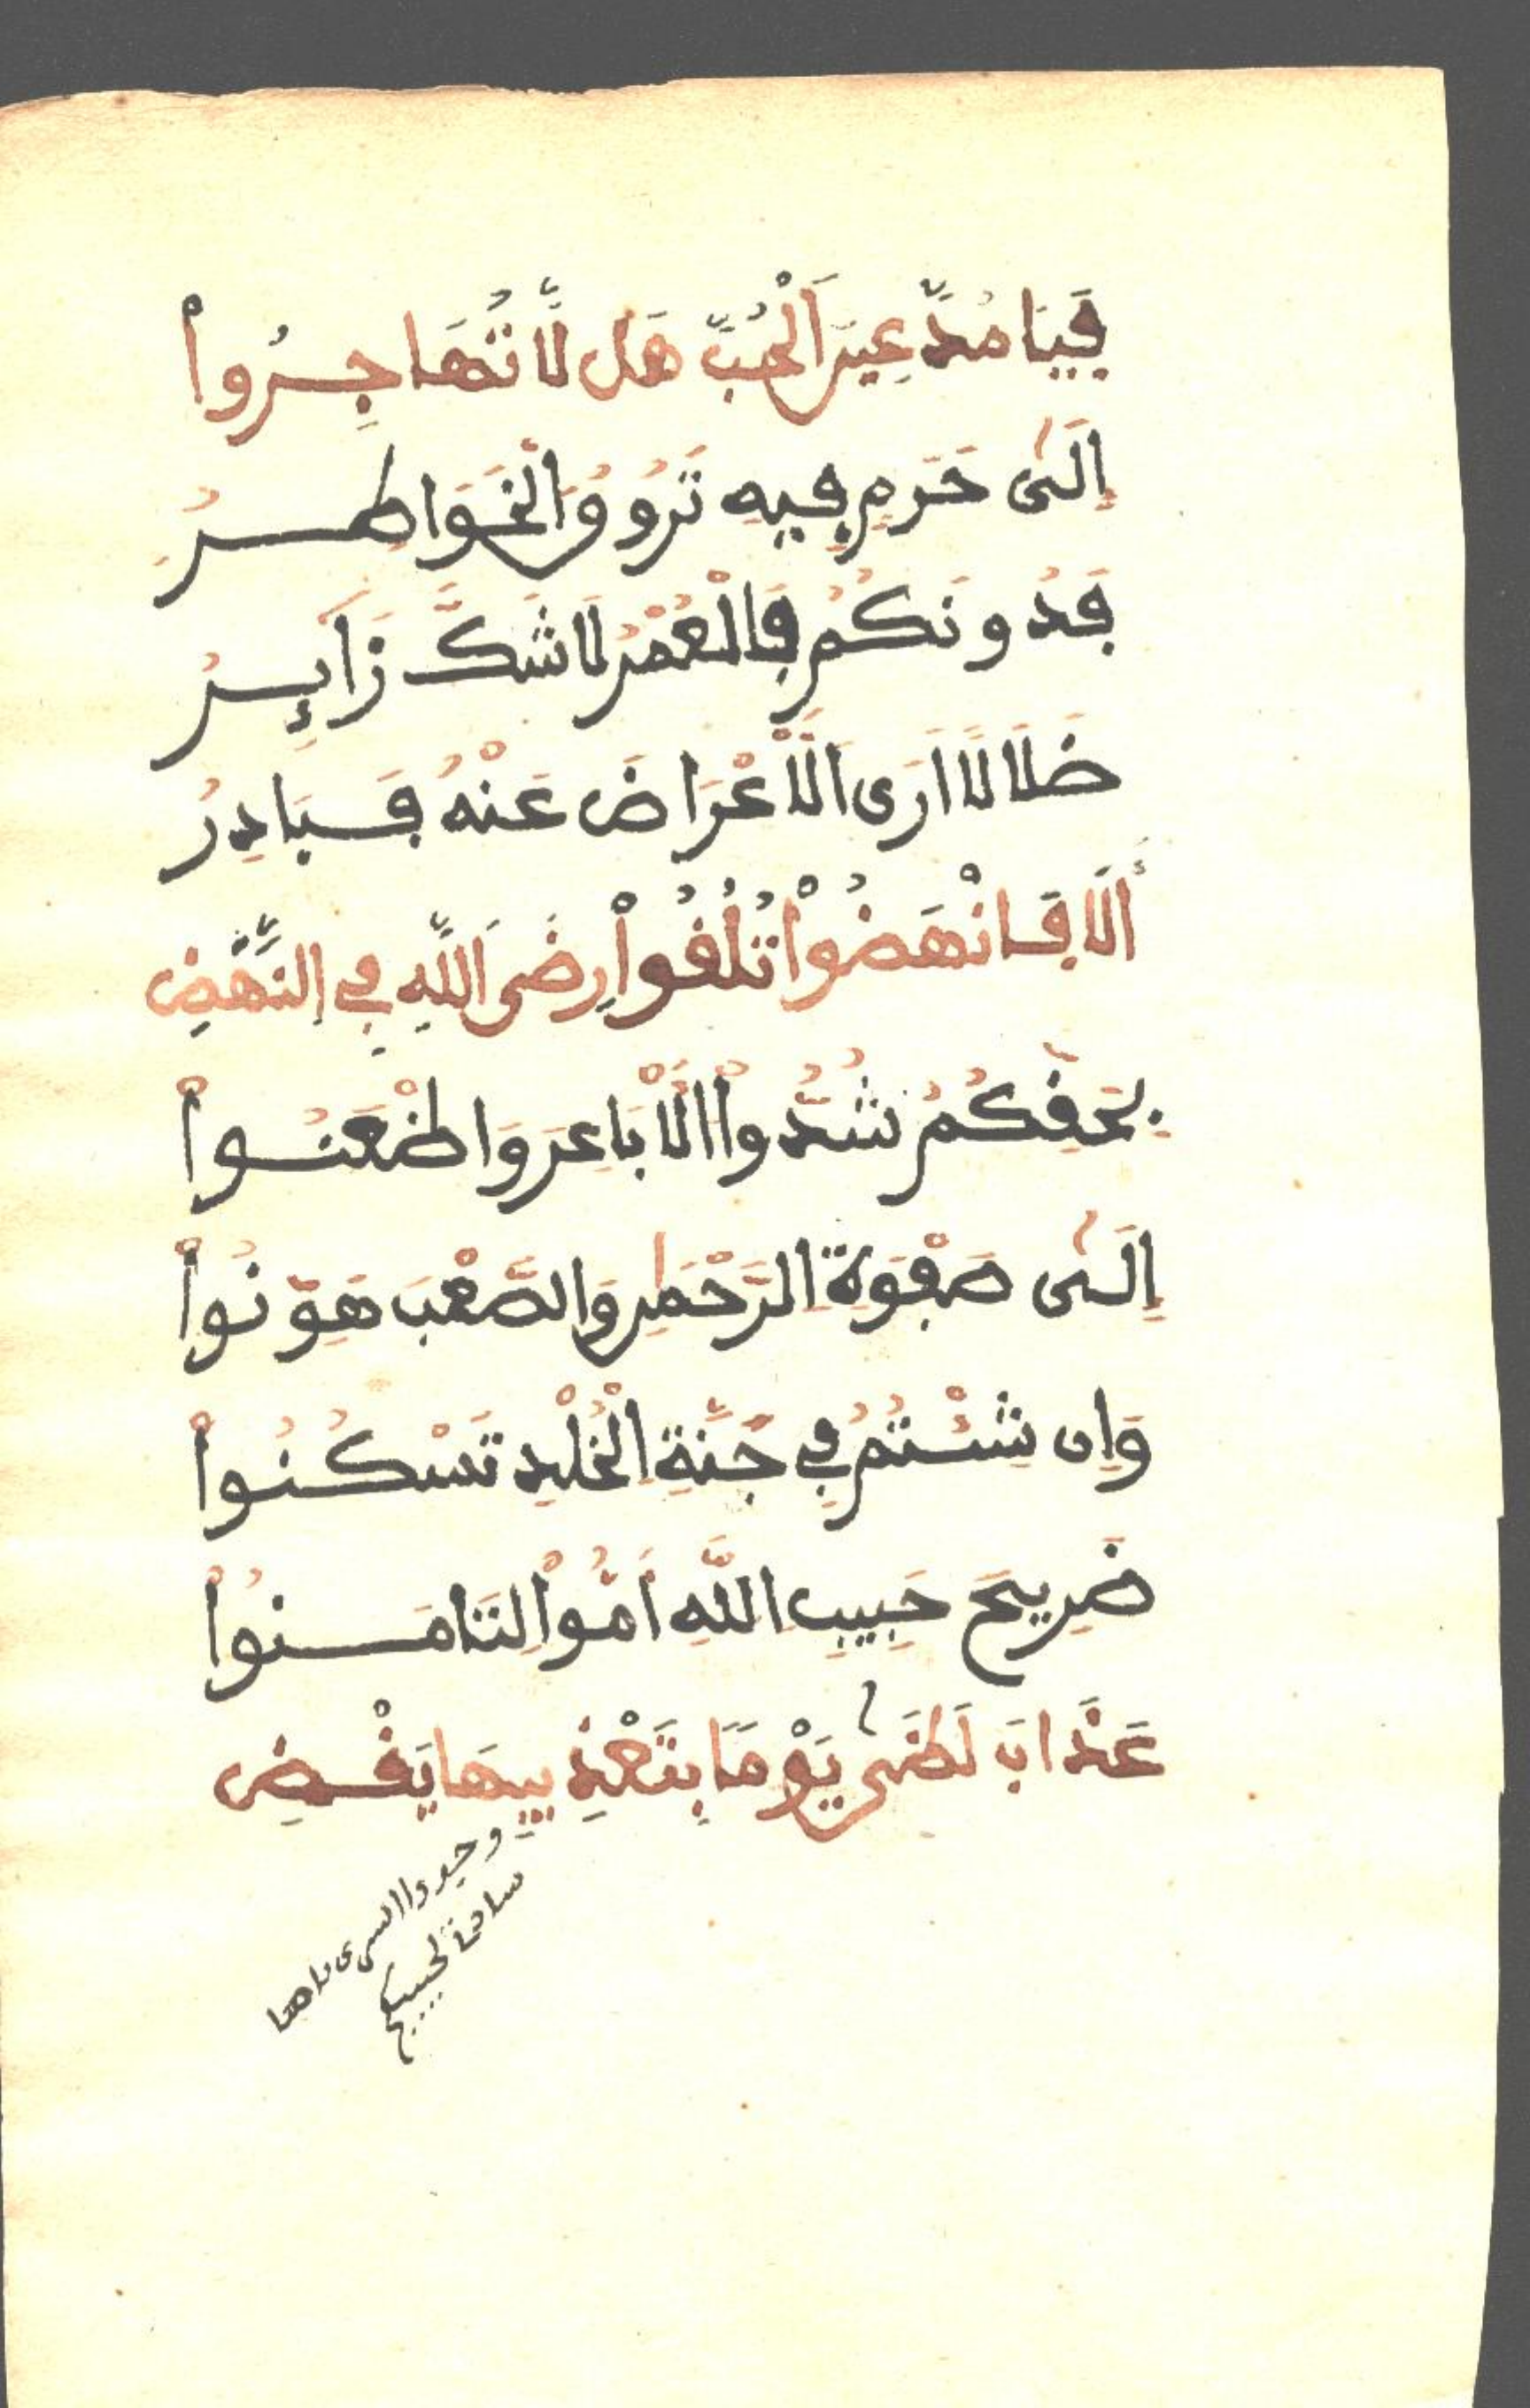 فَيَا مُدَّعِينَ الْحُبِّ هَل لَّا تُهَاجِرُواْ
اِلَىٰ حَرَمٍ فِيهِ تَرُوقُ الْخَوَاطِرُ
فَدُونَكُمْ فَالْعُمْرُ لَا شَكَّ زَائِرُ
ضَلَالًا اَرَى الْأَعْرَاضَ عَنْهُ فَبَادِرُ
أَلَا فَانْهَضُواْ تُلْفُواْ رِضَى اللَّهِ فِي النَّهْضِ
بِحَقِّكُمُ شُدُّواْ الْأَبَاعِرَ وَاظْعَنُواْ
اِلَىٰ صَفْوَةِ الرَّحْمَٰنِ وَالصَّعْبَ هَوِّنُواْ
وَاِن شِئْتُمُ فِي جَنَّةِ الْخُلْدِ تَسْكُنُواْ
ضَرِيحَ حَبِيبِ اللَّهِ اَمُّواْ لِتَامَنُواْ
عَذَابَ لَظَىٰ يَوْمًا بِتَعْذِيبِهَا يَقْضِ